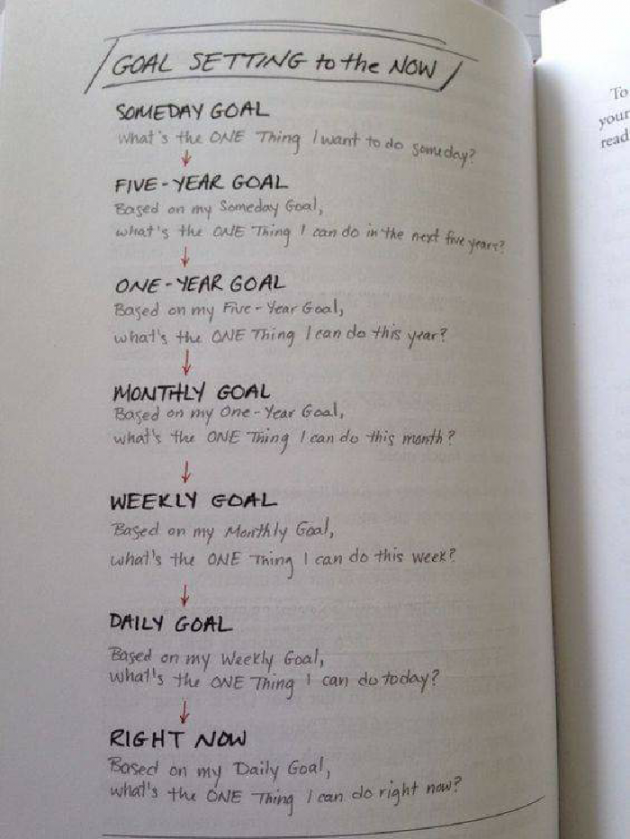 GOAL SETTING to the NOW
SOMEDAY GOAL
what's the ONE Thing I want to do someday?
FIVE-YEAR GOAL
Based on my Someday Goal,
what's the ONE Thing I can do in the next five years?
ONE-YEAR GOAL
Based on my Five-Year Goal,
what's the ONE Thing I can do this year?
MONTHLY GOAL
Based on my One-Year Goal,
what's the ONE Thing I can do this month?
WEEKLY GOAL
Based on my Monthly Goal,
what's the ONE Thing I can do this week?
DAILY GOAL
Based on my Weekly Goal,
what's the ONE Thing I can do today?
RIGHT NOW
Based on my Daily Goal,
what's the ONE Thing I can do right now?
To
your
read